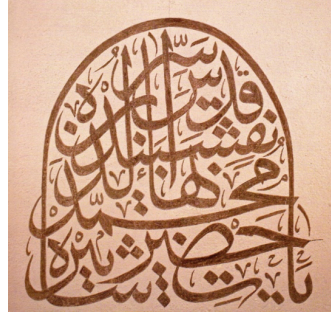 يا حضرت
محمد
بهاء الدين
نقشبند
قدس سره